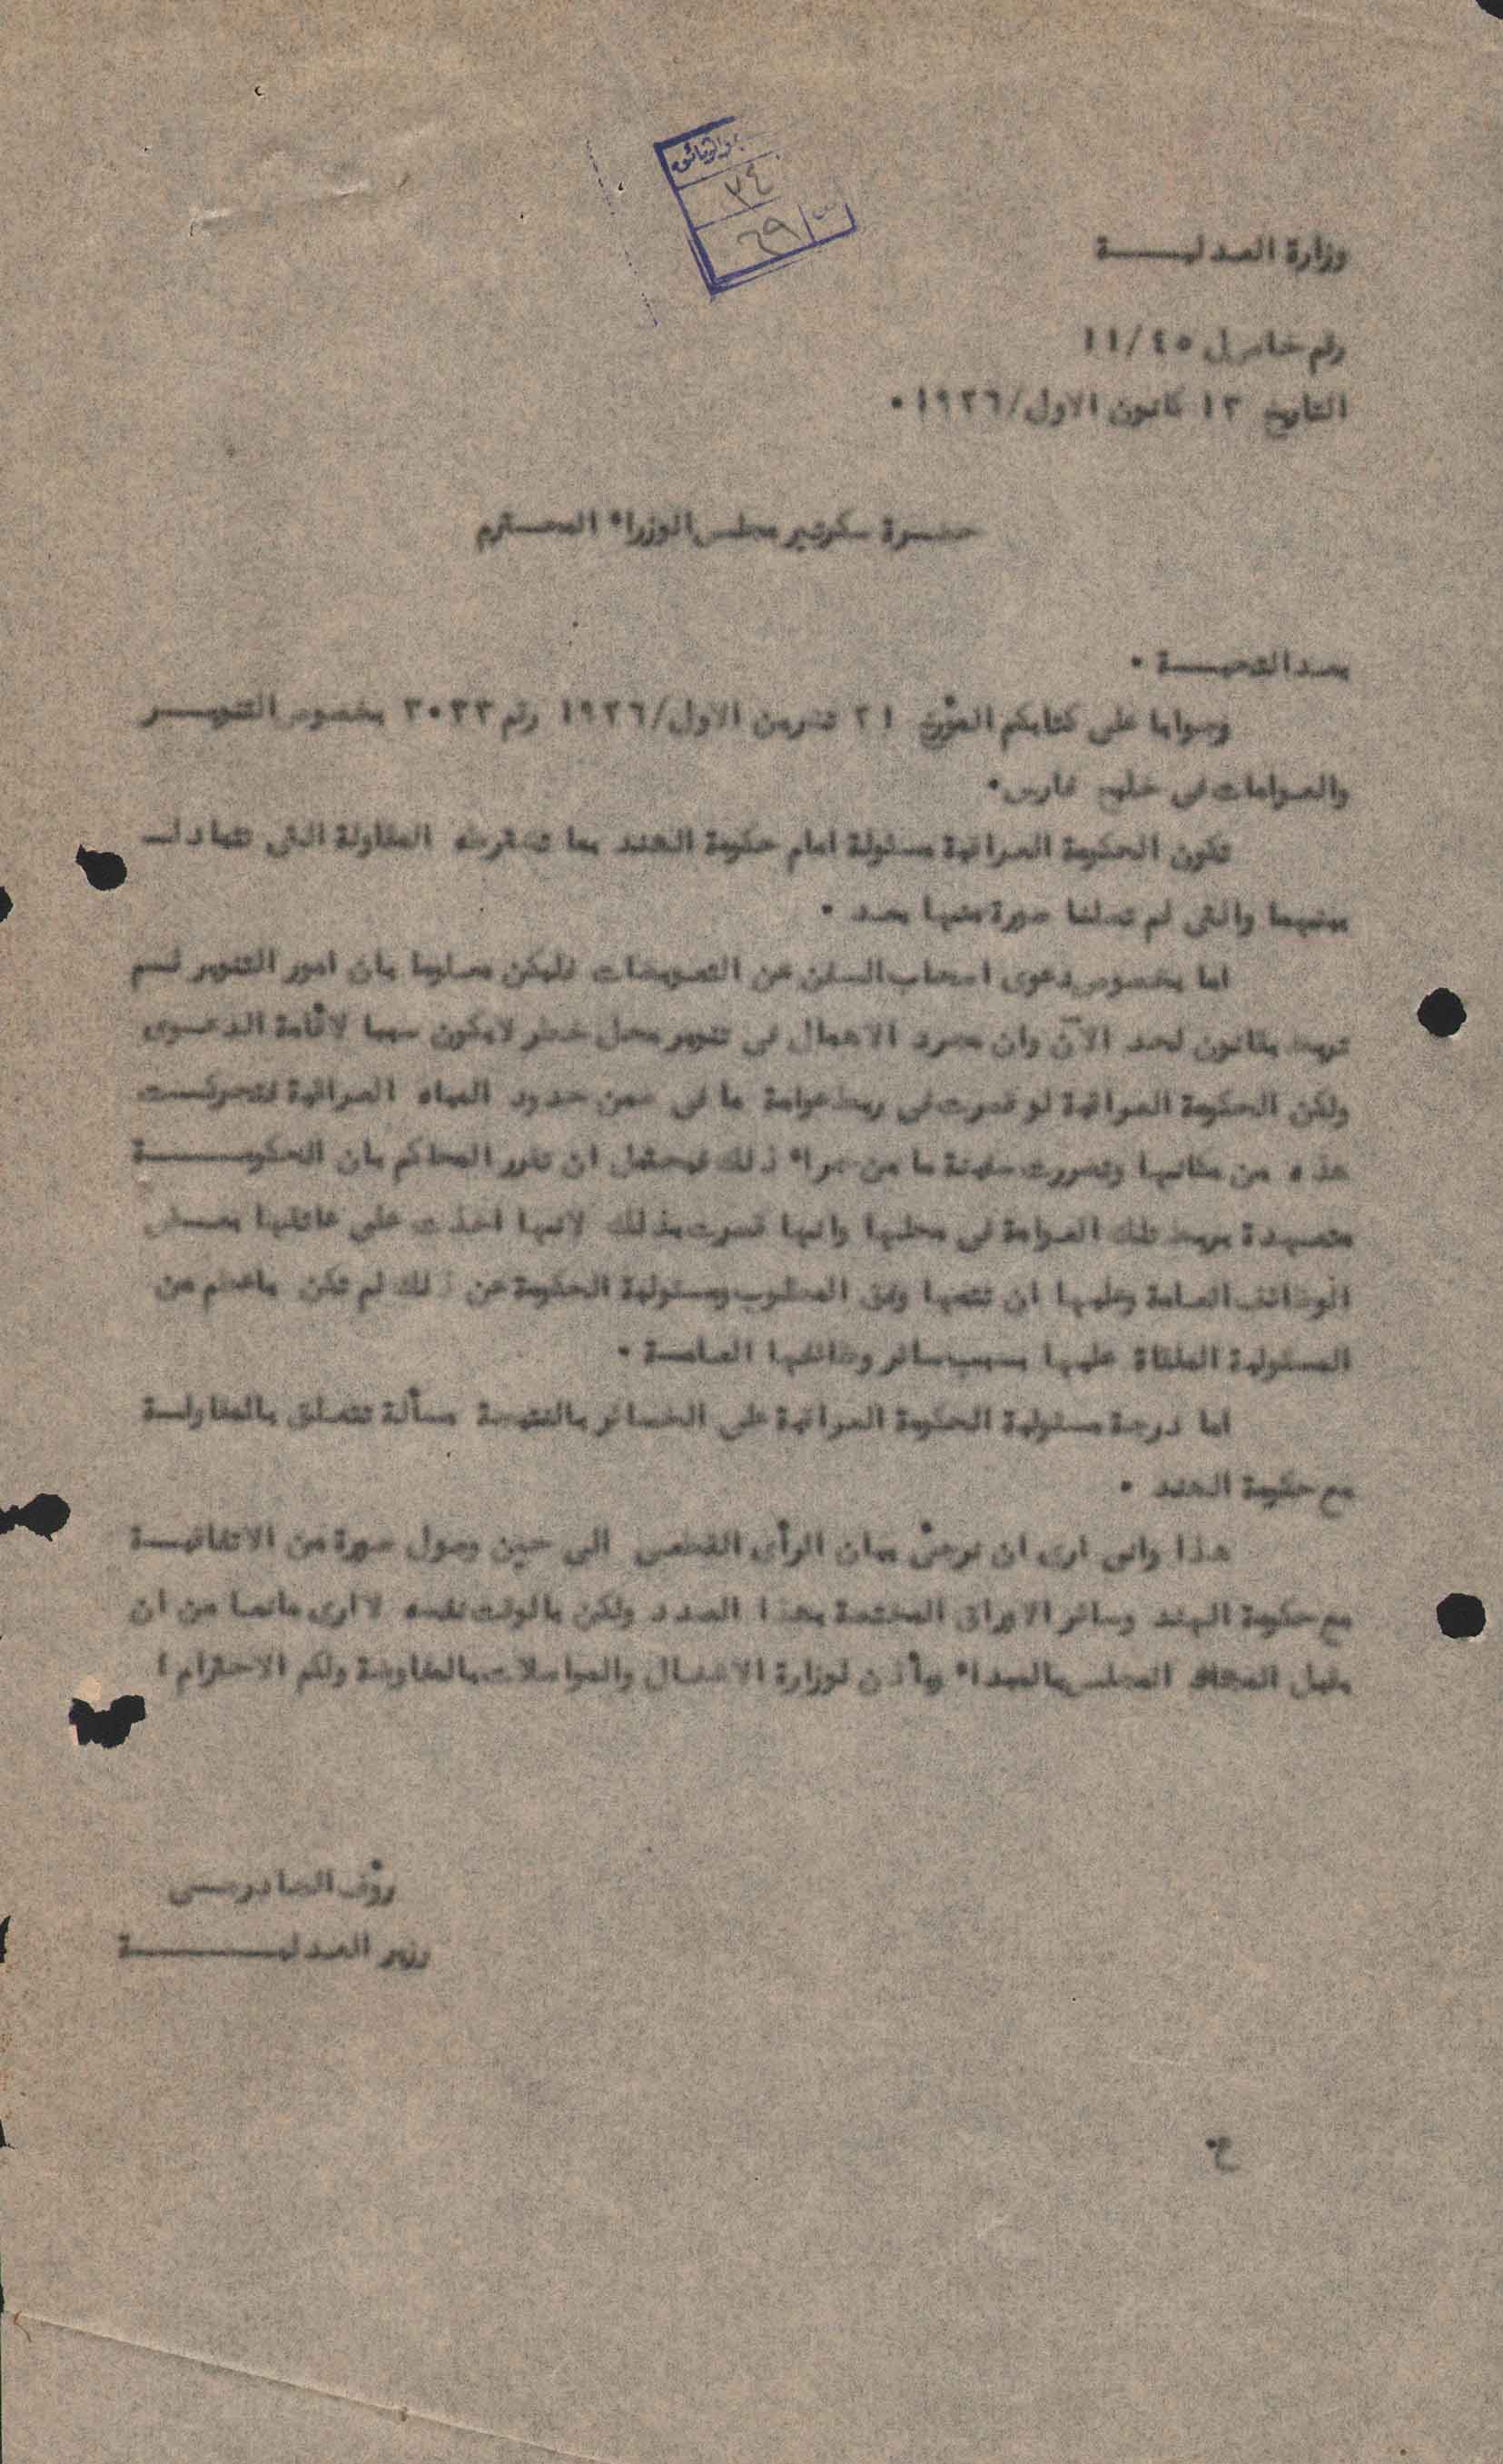 وزارة العدليـــــة
رقم خاص ل ١١/٤٥
التاريخ ١٣ كانون الاول/١٩٢٦ •
حضرة سكرتير مجلس الوزراء المحترم
بعد التحيـــة •
وجوابا على كتابكم المؤرخ ٢١ تشرين الاول/١٩٢٦ رقم ٣٠٣٣ بخصوص التنويـــر
والعوامات في خليج فارس•
تكون الحكومة العراقية مسئولة امام حكومة الهند بما تشترطه المقاولة التي تتبادلـ
بينهما والتي لم تصلنا صورة منها بعد •
اما بخصوص دعوى اصحاب السفن عن التعويضات فليكن معلوما بان امور التنوير لـم
تربط بقانون لحد الآن وان مجرد الاهمال في تنوير محل خطر لايكون سببا لاقامة الدعـوى
ولكن الحكومة العراقية لو قصرت في ربط عوامة ما في ضمن حدود المياه العراقية فتحركـت
هذه من مكانها وتضررت سفينة ما من جراء ذلك فيحتمل ان تقرر المحاكم بان الحكومـــة
متعهدة بربط تلك العوامة في محلها وانها قصرت بذلك لانها اخذت على عاتقها بعـض
الوظائف العامة وعليها ان تتمها وفق المطلوب ومسئولية الحكومة عن ذلك لم تكن باعظم من
المسئولية الملقاة عليها بسبب سائر وظائفها العامـة •
اما درجة مسئولية الحكومة العراقية على الخسائر بالنتيجة مسألة تتعلق بالمقاولـة
مع حكومة الهند •
هذا واني ارى ان نرجئ بيان الرأى القطعي الى حين وصول صورة من الاتفاقيـة
مع حكومة الهند وسائر الاوراق المختصة بهذا الصدد ولكن بالوقت نفسه لا ارى مانعا من ان
يقبل المجلس بالمبداء ويأذن لوزارة الاشغـال والمواصلات بالمفاوضة ولكم الاحترام ا
رؤف الجادرجـي
وزير العدليـــــة
ح•
بد الوثائق
٧٤
ت/٦٩